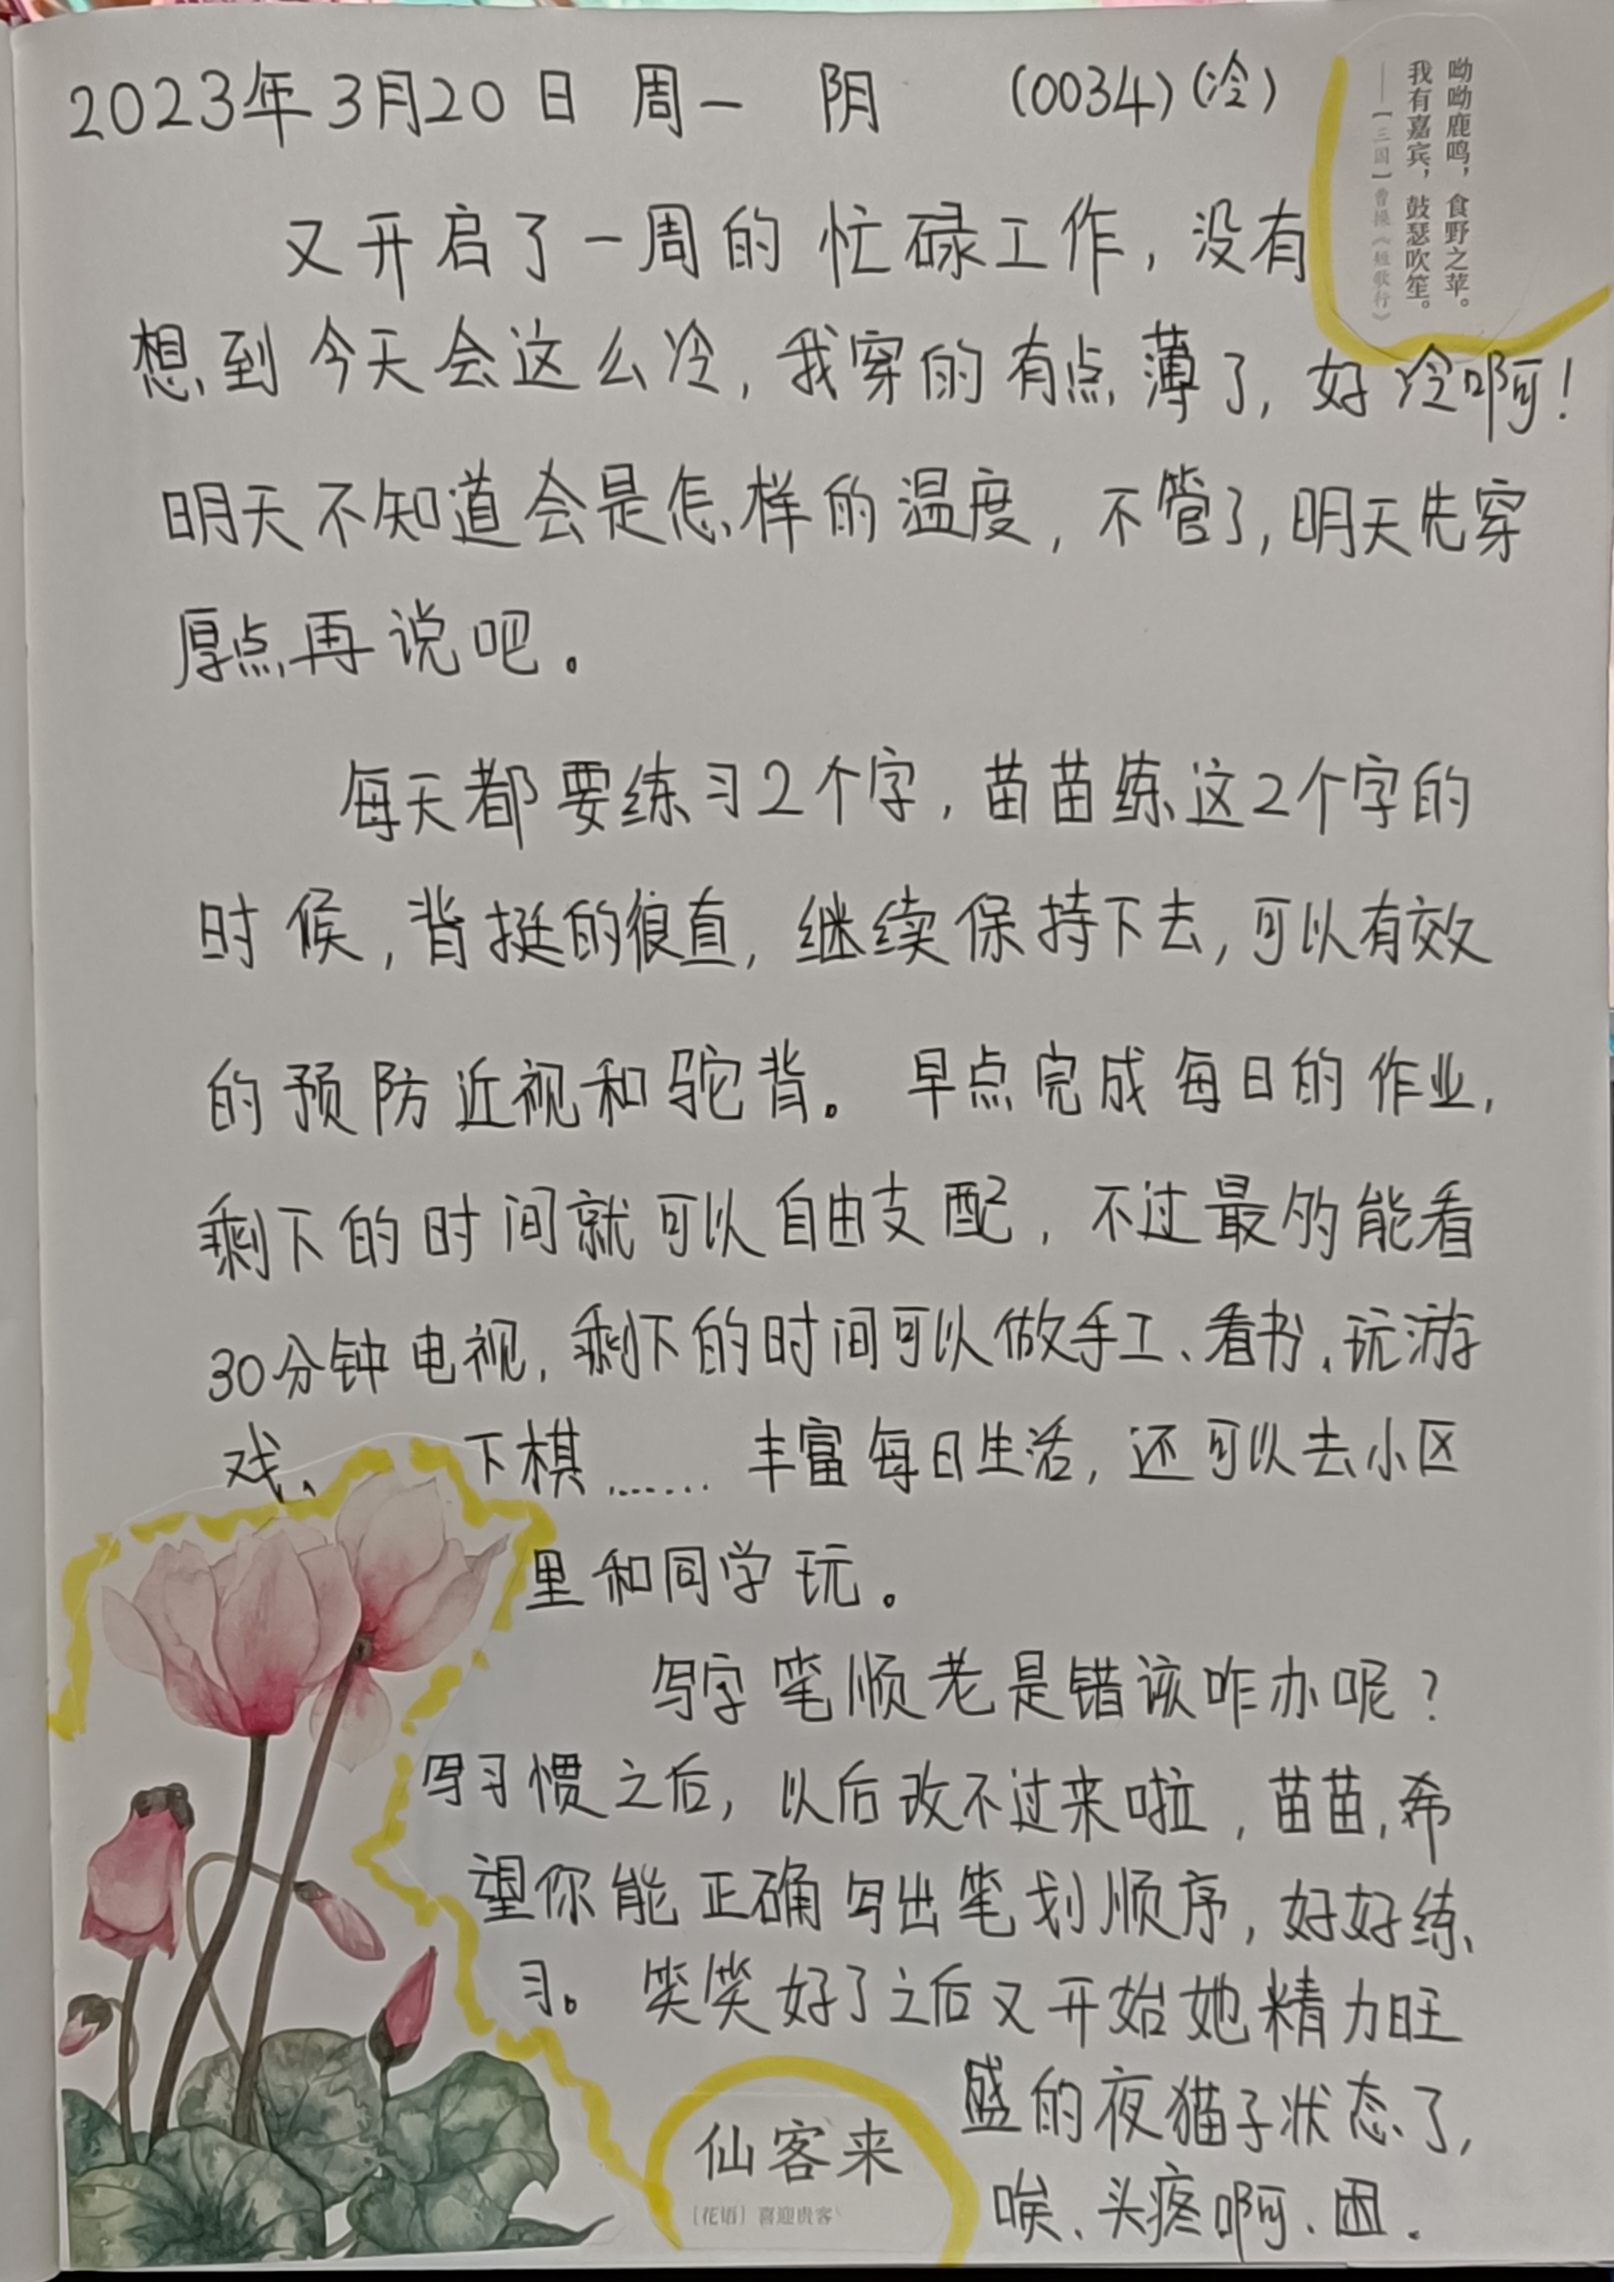 2023年3月20日 周一 阴 (0034)(冷)
呦呦鹿鸣，食野之苹。
我有嘉宾，鼓瑟吹笙。
——[三国]曹操《短歌行》
又开启了一周的忙碌工作，没有
想到今天会这么冷，我穿的有点薄了，好冷啊！
明天不知道会是怎样的温度，不管了，明天先穿
厚点再说吧。
每天都要练习2个字，苗苗练这2个字的
时候，背挺的很直，继续保持下去，可以有效
的预防近视和驼背。早点完成每日的作业，
剩下的时间就可以自由支配，不过最多能看
30分钟电视，剩下的时间可以做手工、看书、玩游
戏、下棋……丰富每日生活，还可以去小区
里和同学玩。
写字笔顺老是错该咋办呢？
写习惯之后，以后改不过来啦，苗苗，希
望你能正确写出笔划顺序，好好练
习。笑笑好了之后又开始她精力旺
盛的夜猫子状态了，
唉、头疼啊、困.
仙客来
[花语] 喜迎贵客